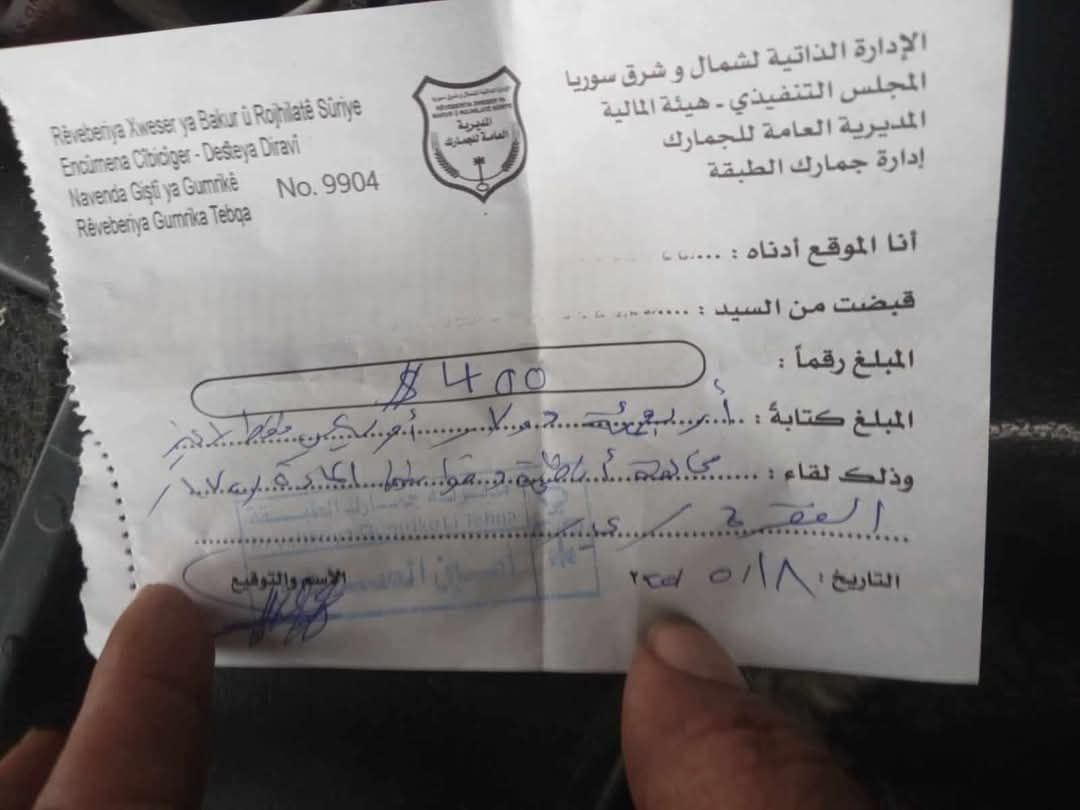 الإدارة الذاتية لشمال و شرق سوريا
المجلس التنفيذي - هيئة المالية
المديرية العامة للجمارك
إدارة جمارك الطبقة
Rêveberiya Xweser ya Bakur û Rojhilatê Sûriye
Encûmena Cîbicîger - Desteya Diravî
Navenda Giştî ya Gumrikê
Rêveberiya Gumrika Tebqa
No. 9904
المديرية
العامة للجمارك
أنا الموقع أدناه :
قبضت من السيد :
المبلغ رقماً :
$ 400
المبلغ كتابةً : أربعمئة دولار أمريكي فقط لاغير
وذلك لقاء : مخالفة
الفقرة
التاريخ : ٥/١٨
الأسم والتوقيع